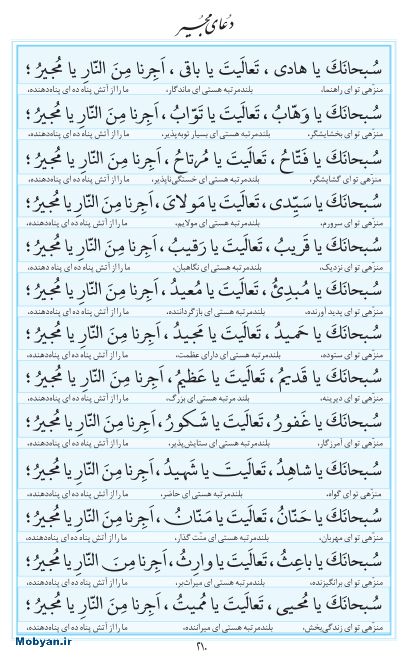 دُعای مُجیر
سُبحانَكَ یا هادی ، تَعالَیتَ یا باقی ، اَجِرنا مِنَ النّارِ یا مُجیرُ ؛
منزّهی تو ای راهنما، بلندمرتبه هستی ای ماندگار، ما را از آتش پناه ده ای پناه‌دهنده،
سُبحانَكَ یا وَهّابُ ، تَعالَیتَ یا تَوّابُ ، اَجِرنا مِنَ النّارِ یا مُجیرُ ؛
منزّهی تو ای بخشایشگر، بلندمرتبه هستی ای بسیار توبه‌پذیر، ما را از آتش پناه ده ای پناه‌دهنده،
سُبحانَكَ یا فَتّاحُ ، تَعالَیتَ یا مُرتاحُ ، اَجِرنا مِنَ النّارِ یا مُجیرُ ؛
منزّهی تو ای گشایشگر، بلندمرتبه هستی ای خستگی‌ناپذیر، ما را از آتش پناه ده ای پناه‌دهنده،
سُبحانَكَ یا سَیِّدی ، تَعالَیتَ یا مَولایَ ، اَجِرنا مِنَ النّارِ یا مُجیرُ ؛
منزّهی تو ای سرورم، بلندمرتبه هستی ای مولایم، ما را از آتش پناه ده ای پناه‌دهنده،
سُبحانَكَ یا قَریبُ ، تَعالَیتَ یا رَقیبُ ، اَجِرنا مِنَ النّارِ یا مُجیرُ ؛
منزّهی تو ای نزدیک، بلندمرتبه هستی ای نگاهبان، ما را از آتش پناه ده ای پناه‌دهنده،
سُبحانَكَ یا مُبدِئُ ، تَعالَیتَ یا مُعیدُ ، اَجِرنا مِنَ النّارِ یا مُجیرُ ؛
منزّهی تو ای پدید آورنده، بلندمرتبه هستی ای بازگرداننده، ما را از آتش پناه ده ای پناه‌دهنده،
سُبحانَكَ یا حَمیدُ ، تَعالَیتَ یا مَجیدُ ، اَجِرنا مِنَ النّارِ یا مُجیرُ ؛
منزّهی تو ای ستوده، بلندمرتبه هستی ای دارای عظمت، ما را از آتش پناه ده ای پناه‌دهنده،
سُبحانَكَ یا قَدیمُ ، تَعالَیتَ یا عَظیمُ ، اَجِرنا مِنَ النّارِ یا مُجیرُ ؛
منزّهی تو ای دیرینه، بلند مرتبه هستی ای بزرگ، ما را از آتش پناه ده ای پناه‌دهنده،
سُبحانَكَ یا غَفورُ ، تَعالَیتَ یا شَکورُ ، اَجِرنا مِنَ النّارِ یا مُجیرُ ؛
منزّهی تو ای آمرزگار، بلندمرتبه هستی ای ستایش‌پذیر، ما را از آتش پناه ده ای پناه‌دهنده،
سُبحانَكَ یا شاهِدُ ، تَعالَیتَ یا شَهیدُ ، اَجِرنا مِنَ النّارِ یا مُجیرُ ؛
منزّهی تو ای گواه، بلندمرتبه هستی ای حاضر، ما را از آتش پناه ده ای پناه‌دهنده،
سُبحانَكَ یا حَنّانُ ، تَعالَیتَ یا مَنّانُ ، اَجِرنا مِنَ النّارِ یا مُجیرُ ؛
منزّهی تو ای مهربان، بلندمرتبه هستی ای منّت گذار، ما را از آتش پناه ده ای پناه‌دهنده،
سُبحانَكَ یا باعِثُ ، تَعالَیتَ یا وارِثُ ، اَجِرنا مِنَ النّارِ یا مُجیرُ ؛
منزّهی تو ای برانگیزنده، بلندمرتبه هستی ای میراث‌بر، ما را از آتش پناه ده ای پناه‌دهنده،
سُبحانَكَ یا مُحیی ، تَعالَیتَ یا مُمیتُ ، اَجِرنا مِنَ النّارِ یا مُجیرُ ؛
منزّهی تو ای زندگی‌بخش، بلندمرتبه هستی ای میراننده، ما را از آتش پناه ده ای پناه‌دهنده،
۲۱۰
Mobyan.ir